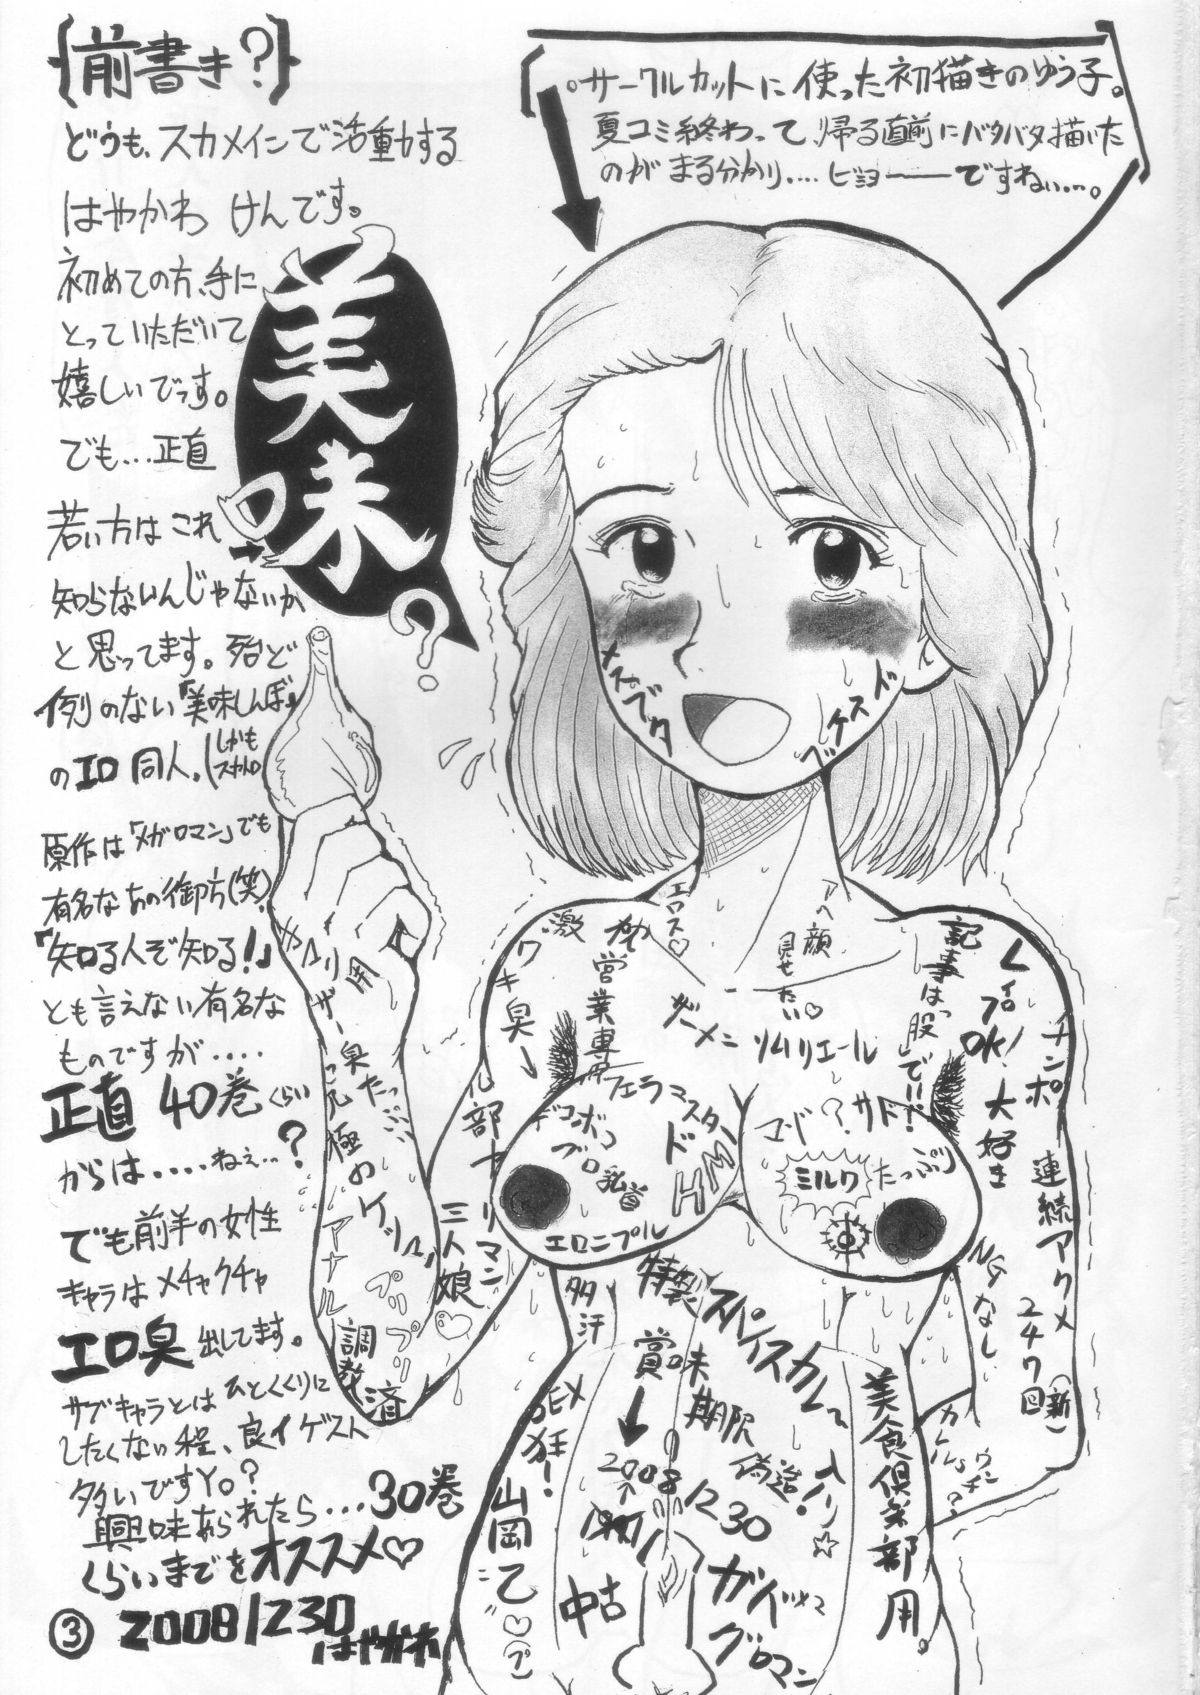 {前書き?}
どうも、スカメインで活動する
はやかわ けんです。
初めての方、手に
とっていただいて
嬉しいでっす。
でも…正直
若い方はこれ
知らないんじゃないか
と思ってます。殆ど
例のない「美味しんぼ」
のエロ同人。(しかも
スカトロ
原作は「メガロマン」でも
有名なあの御方(笑)
「知る人ぞ知る!」
とも言えない有名な
ものですが‥‥
正直 40巻くらい
からは‥‥ねぇ‥?
でも前半の女性
キャラはメチャクチャ
エロ臭出してます。
サブキャラとはひとくくりに
したくない程、良イゲスト
多いですYo。?
興味あられたら…30巻
くらいまでをオススメ♡
③ 2008/1230
はやかわ
美味?
。サークルカットに使った初描きのゆう子。
夏コミ終わって、帰る直前にバタバタ描いた
のがまる分かり‥‥ビミョーーーですねぃ…。
メスブタ
ドスケベ
エロス♡
アヘ顔
見せたい♡
激
ワキ臭→
営業専用
ザーメン
ソムリエール
記事は「股」で!!
レイプOK!大好き
チンポ
連続アクメ
247回
(新)
NGなし
フェラマスター
デコボコ
ブロ乳首
ドMH
エロニプル
マゾ?サド?
ミルク
たっぷり
三人娘♡
多汗
特製スパイスカレー入り☆
賞味期限
偽造!
2008
1230
中古
SEX狂!
山岡
美食倶楽部用。
ザー臭たっぷり
究極のケツ
アナル調教済
プリプリ
カレー
ウンチ?
グロマン